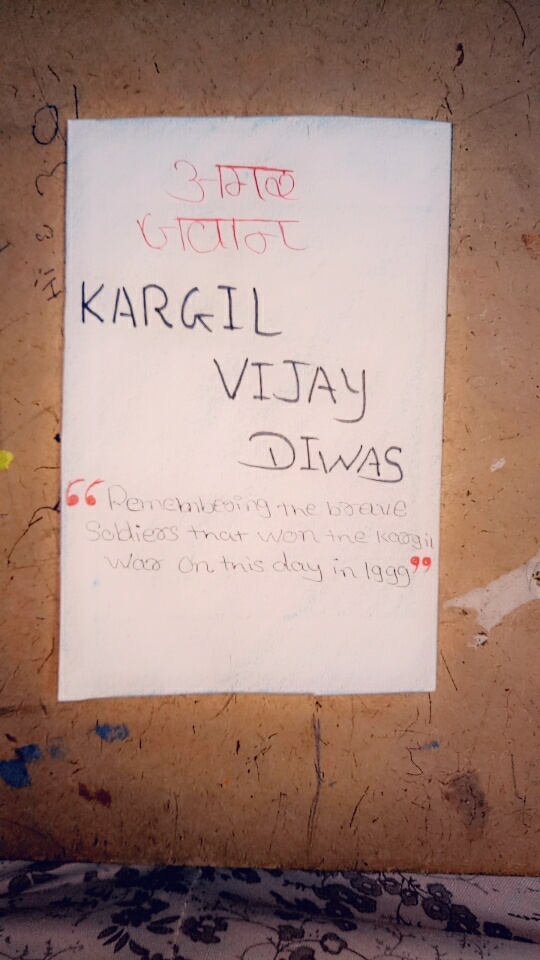 अमळ
जवान
KARGIL
VIJAY
DIWAS
“Remembering the brave
Soldiers that won the Kargil
war on this day in 1999”